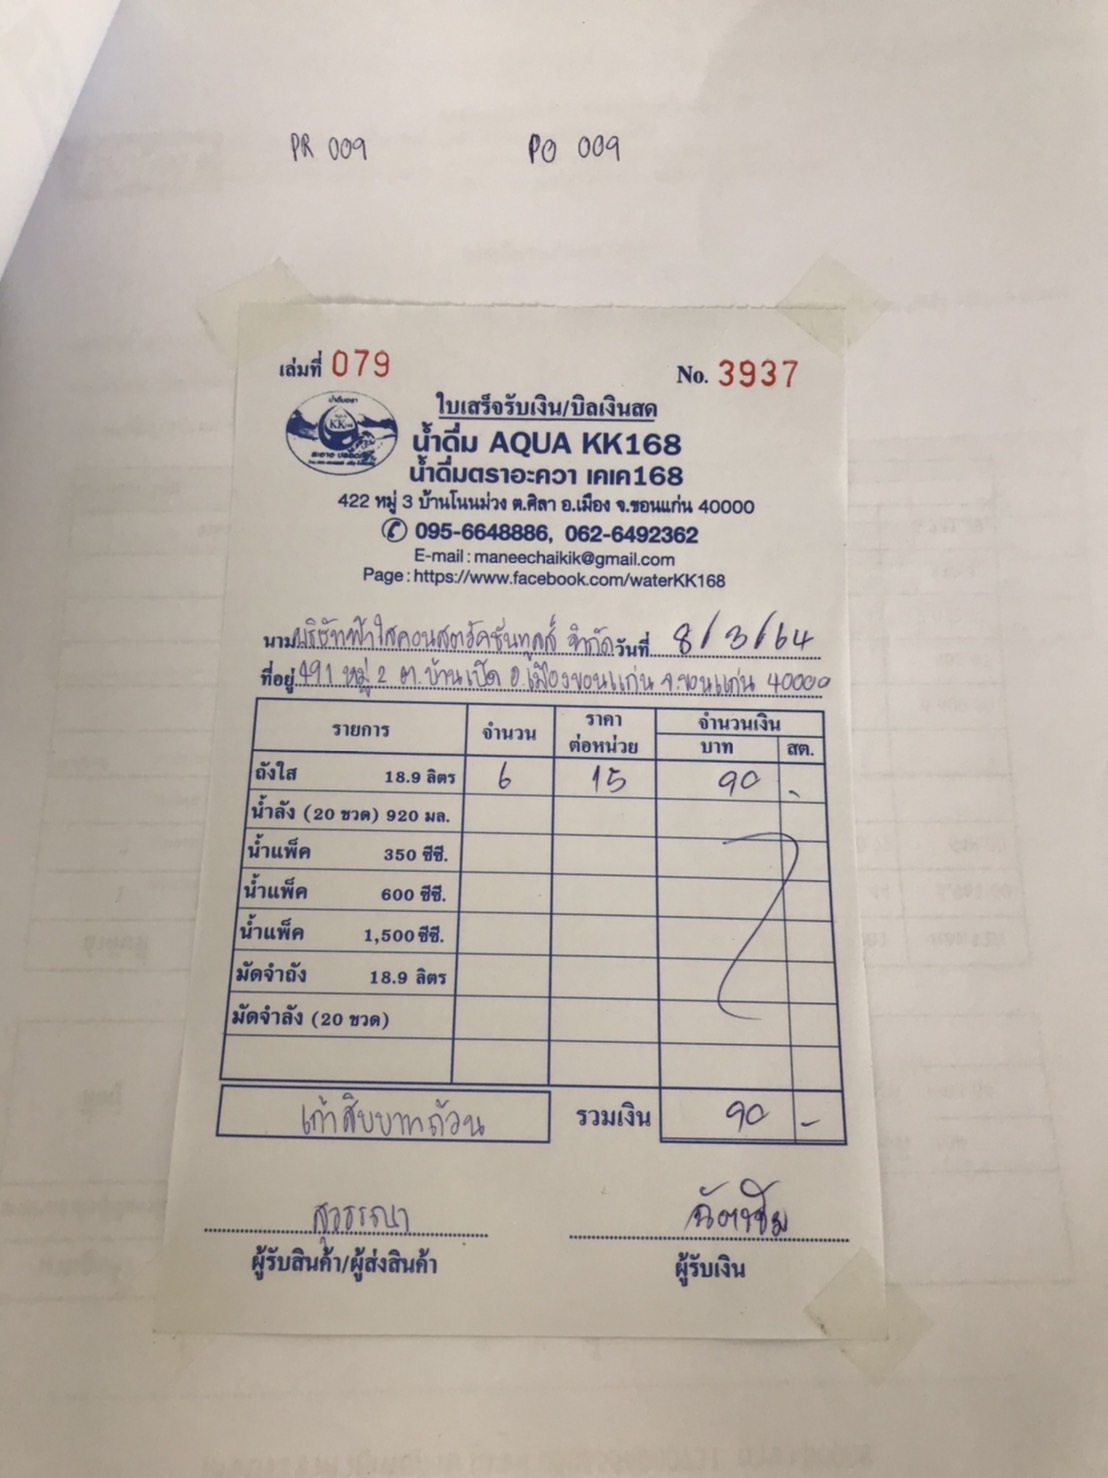 PR 009 PO 009
เล่มที่ 079 No. 3937
ใบเสร็จรับเงิน/บิลเงินสด
น้ำดื่ม AQUA KK168
น้ำดื่มตราอะควา เคเค168
422 หมู่ 3 บ้านโนนม่วง ต.ศิลา อ.เมือง จ.ขอนแก่น 40000
095-6648886, 062-6492362
E-mail : maneechaikik@gmail.com
Page : https://www.facebook.com/waterKK168
นาม บริษัทฟ้าใสคอนสตรัคชั่นทูลส์ จำกัด วันที่ 8/3/64
ที่อยู่ 491 หมู่ 2 ต.บ้านเป็ด อ.เมืองขอนแก่น จ.ขอนแก่น 40000
รายการ จำนวน ราคาต่อหน่วย จำนวนเงิน
บาท สต.
ถังใส 18.9 ลิตร 6 15 90 -
น้ำลัง (20 ขวด) 920 มล.
น้ำแพ็ค 350 ซีซี.
น้ำแพ็ค 600 ซีซี.
น้ำแพ็ค 1,500 ซีซี.
มัดจำถัง 18.9 ลิตร
มัดจำลัง (20 ขวด)
เก้าสิบบาทถ้วน รวมเงิน 90 -
สุวรรณา
ผู้รับสินค้า/ผู้ส่งสินค้า ผู้รับเงิน